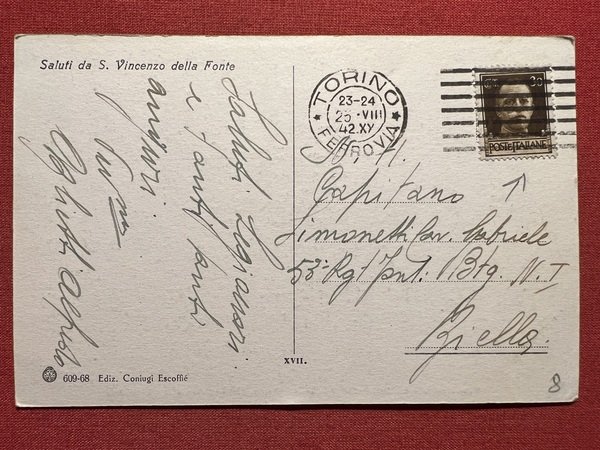 Saluti da S. Vincenzo della Fonte
Saluti
e tanti tanti
auguri
TORINO
23-24
25 ·VIII
42.XX
FERROVIA
30
POSTE ITALIANE
Capitano
Simonetti Cav. Gabriele
53º Rgt Fant. Btg. N. I
Biella
XVII.
609-68 Ediz. Coniugi Escoffié
8